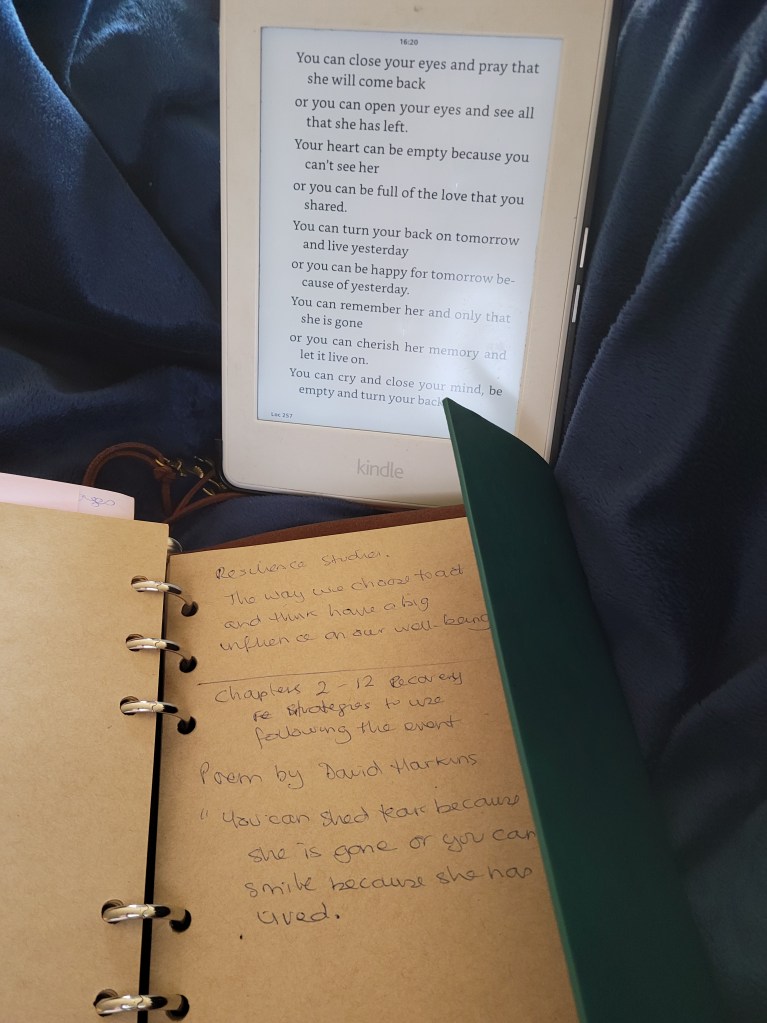 16:20
You can close your eyes and pray that
she will come back
or you can open your eyes and see all
that she has left.
Your heart can be empty because you
can't see her
or you can be full of the love that you
shared.
You can turn your back on tomorrow
and live yesterday
or you can be happy for tomorrow be-
cause of yesterday.
You can remember her and only that
she is gone
or you can cherish her memory and
let it live on.
You can cry and close your mind, be
empty and turn your back
Loc 257
kindle
Resilience Studies.
The way we choose to act
and think have a big
influence on our well-being
Chapters 2-12 Recovery
re strategies to use
following the event
Poem by David Harkins
"You can shed tear because
she is gone or you can
smile because she has
lived.